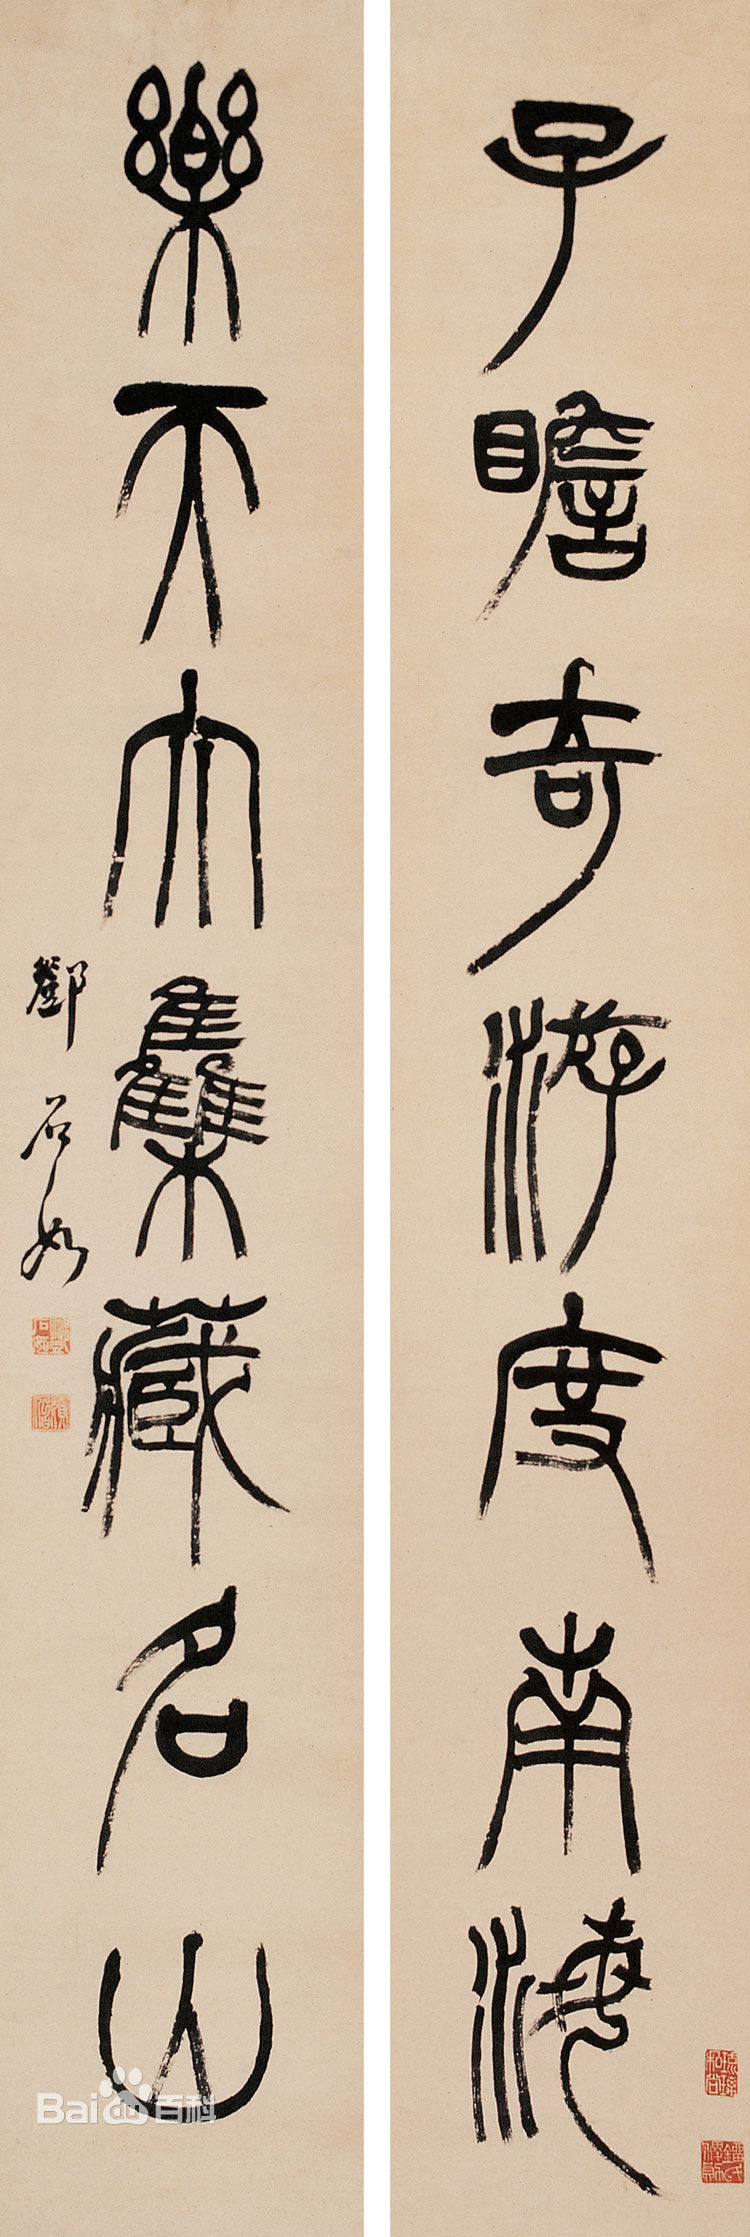 子瞻奇游度南海
樂天大集藏名山
鄧石如
Bai百科